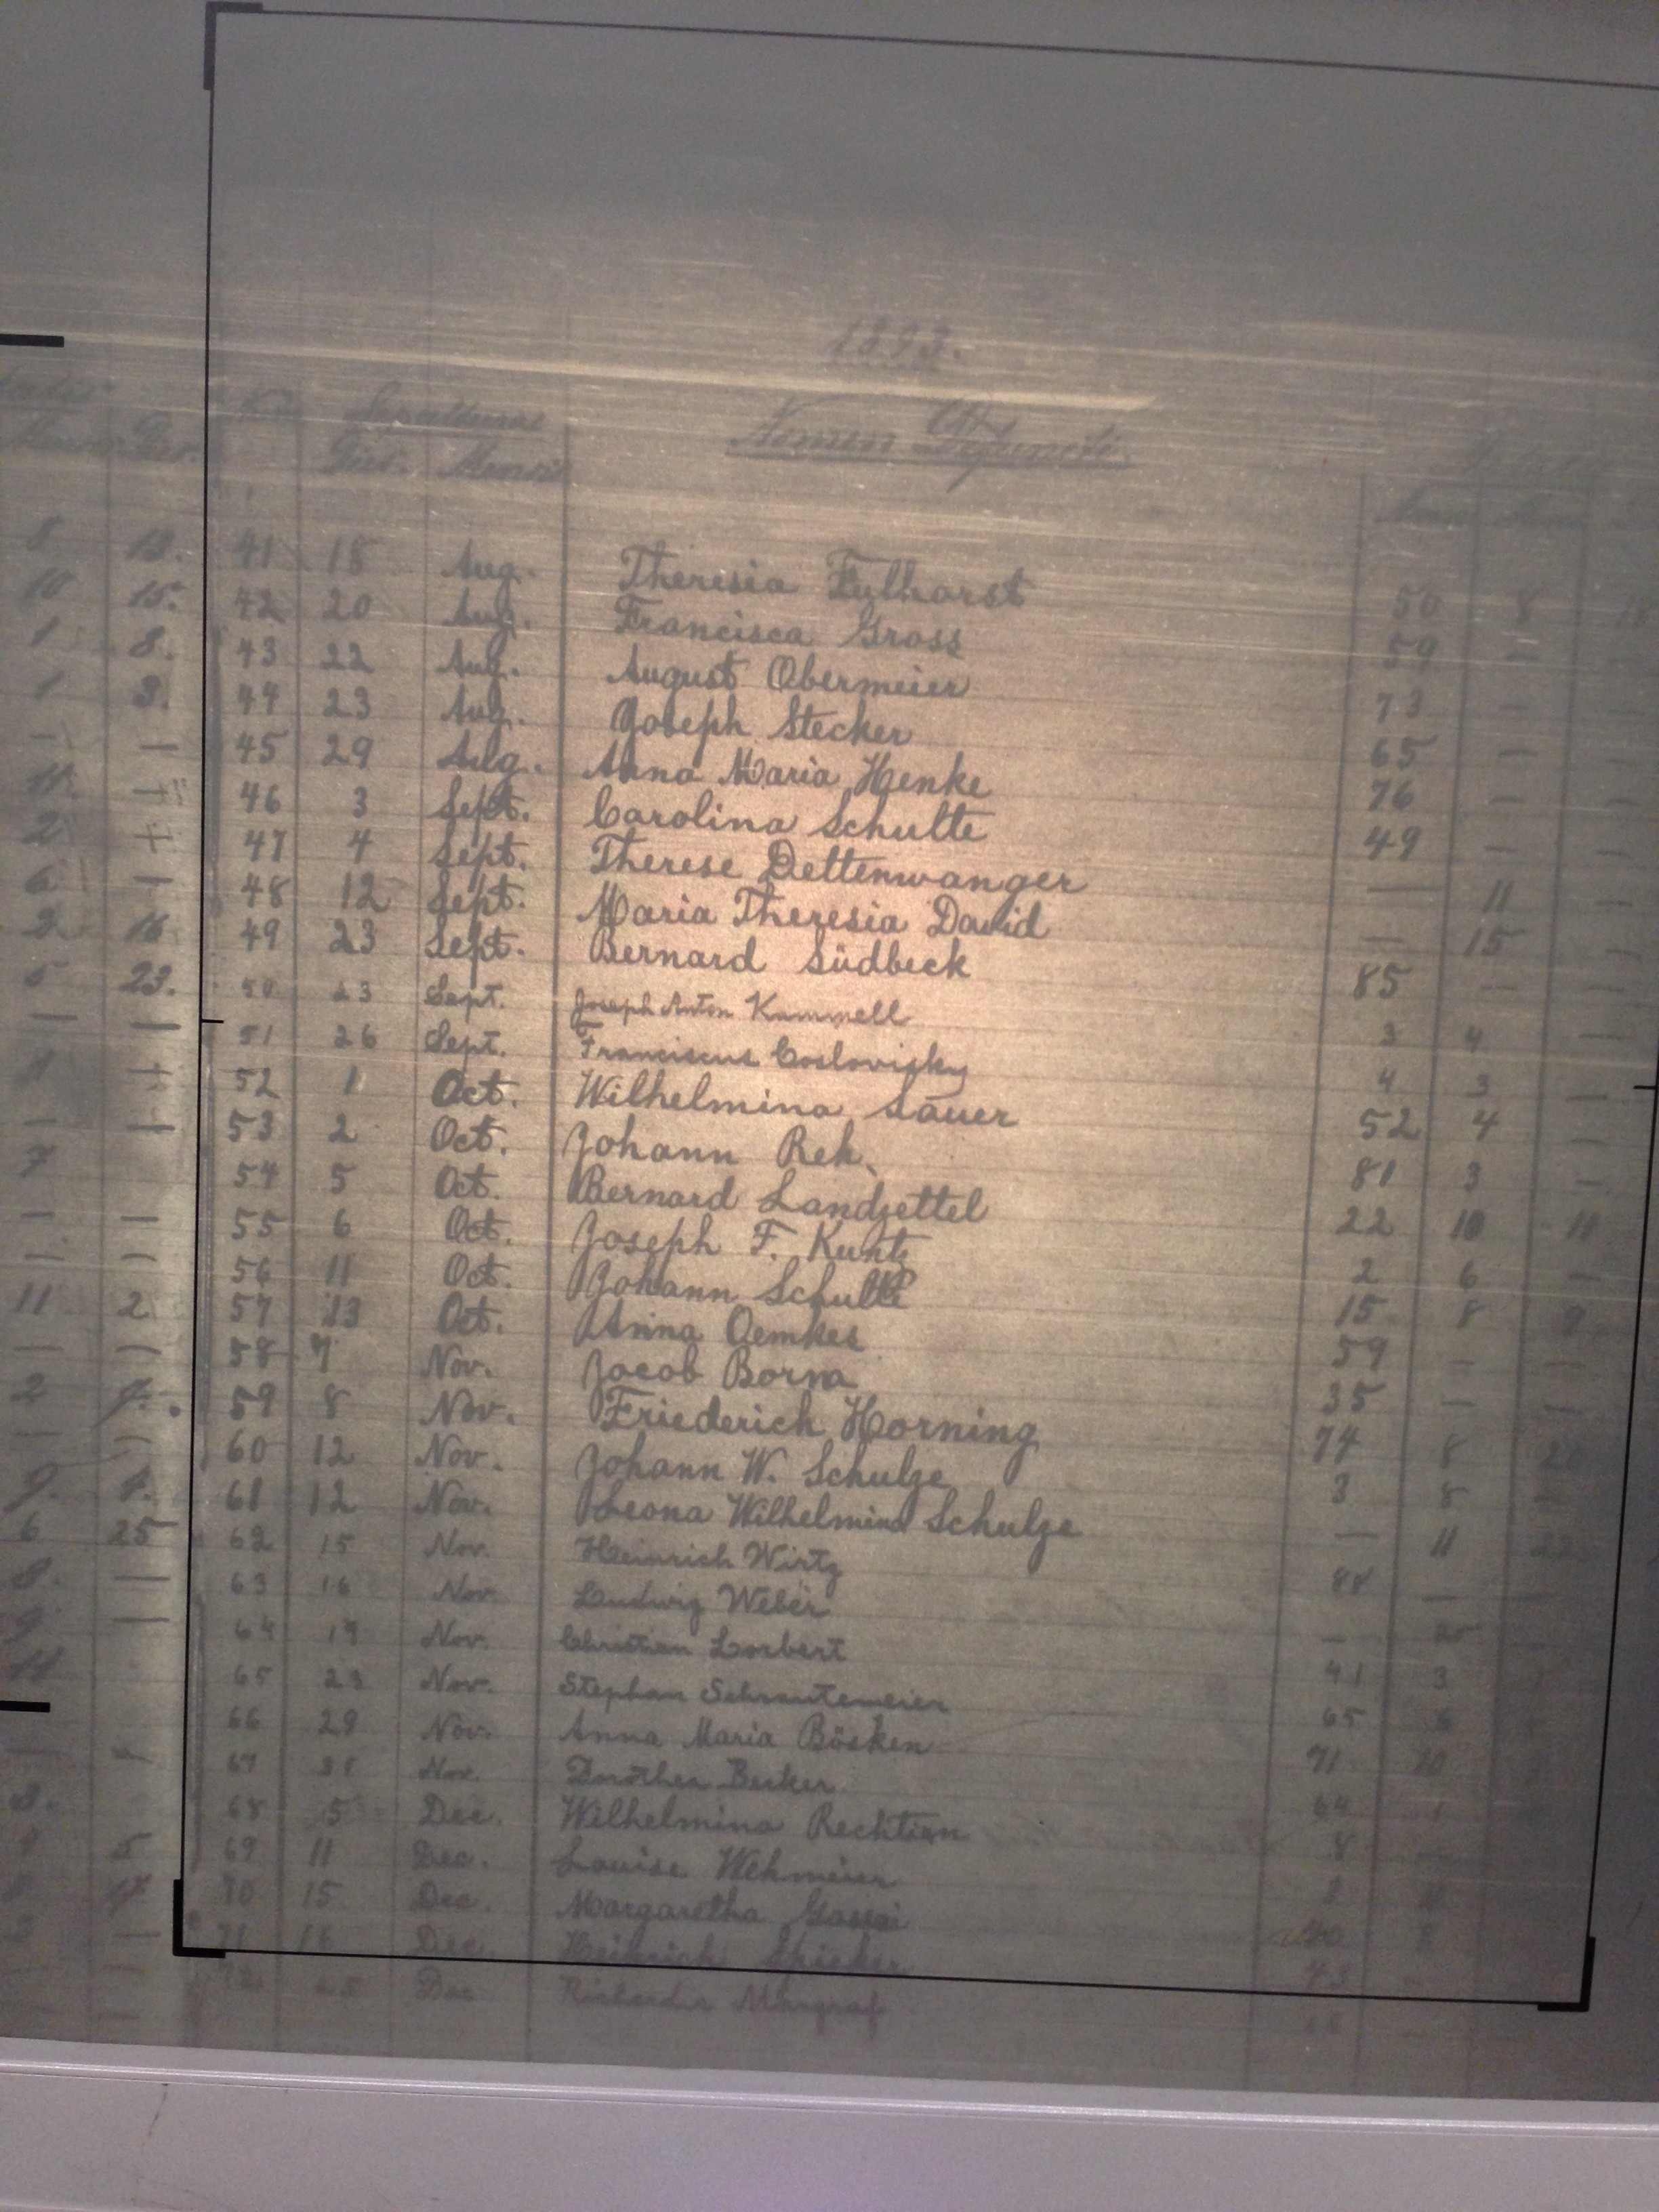 1893.
Nomen Defuncti.
8 13. 41 18 Aug. Theresia Fulhorst 50 8 18
10 15. 42 20 Aug. Francisca Gross 59 —
1 8. 43 22 Aug. August Obermeier 73 —
1 3. 44 23 Aug. Joseph Stecker 65 —
— — 45 29 Aug. Anna Maria Henke 76 —
46 3 Sept. Carolina Schulte 49 —
2 47 4 Sept. Therese Dettenwanger — 11 —
6 48 12 Sept. Maria Theresia David — 15 —
2 16 49 23 Sept. Bernard Südbeck 85 — —
5 23. 50 23 Sept. Joseph Anton Kammell 3 4 —
— — 51 26 Sept. Franciscus 4 3 —
52 1 Oct. Wilhelmina Sauer 52 4 —
— — 53 2 Oct. Johann Reh. 81 3 —
7 54 5 Oct. Bernard Landzettel 22 10 11
— — 55 6 Oct. Joseph F. Kuntz 2 6 —
— — 56 11 Oct. Johann Schulte 15 8 9
11 2 57 13 Oct. Anna Oemkes 59 — —
— — 58 7 Nov. Jacob Borna 35 — —
2 59 8 Nov. Friederich Horning 74 8
— — 60 12 Nov. Johann W. Schulze 3 8 —
9. 4. 61 12 Nov. Leona Wilhelmina Schulze — 11 22
6 25 62 15 Nov. Heinrich Wirtz —
8. — 63 16 Nov. Ludwig Weber — 25
9 — 64 19 Nov. Christian Lorbert 41 3
65 23 Nov. Stephan Schrautemeier 65 6
66 29 Nov. Anna Maria Bösken 71 10
67 Nov. Dorothea Becker 64 1
3. 68 5 Dec. Wilhelmina Rechtien 8
9 5 69 11 Dec. Louise Wehmeier
70 15 Dec. Margaretha
71 16 Dec. Heinrich Spieker 43
72 25 Dec